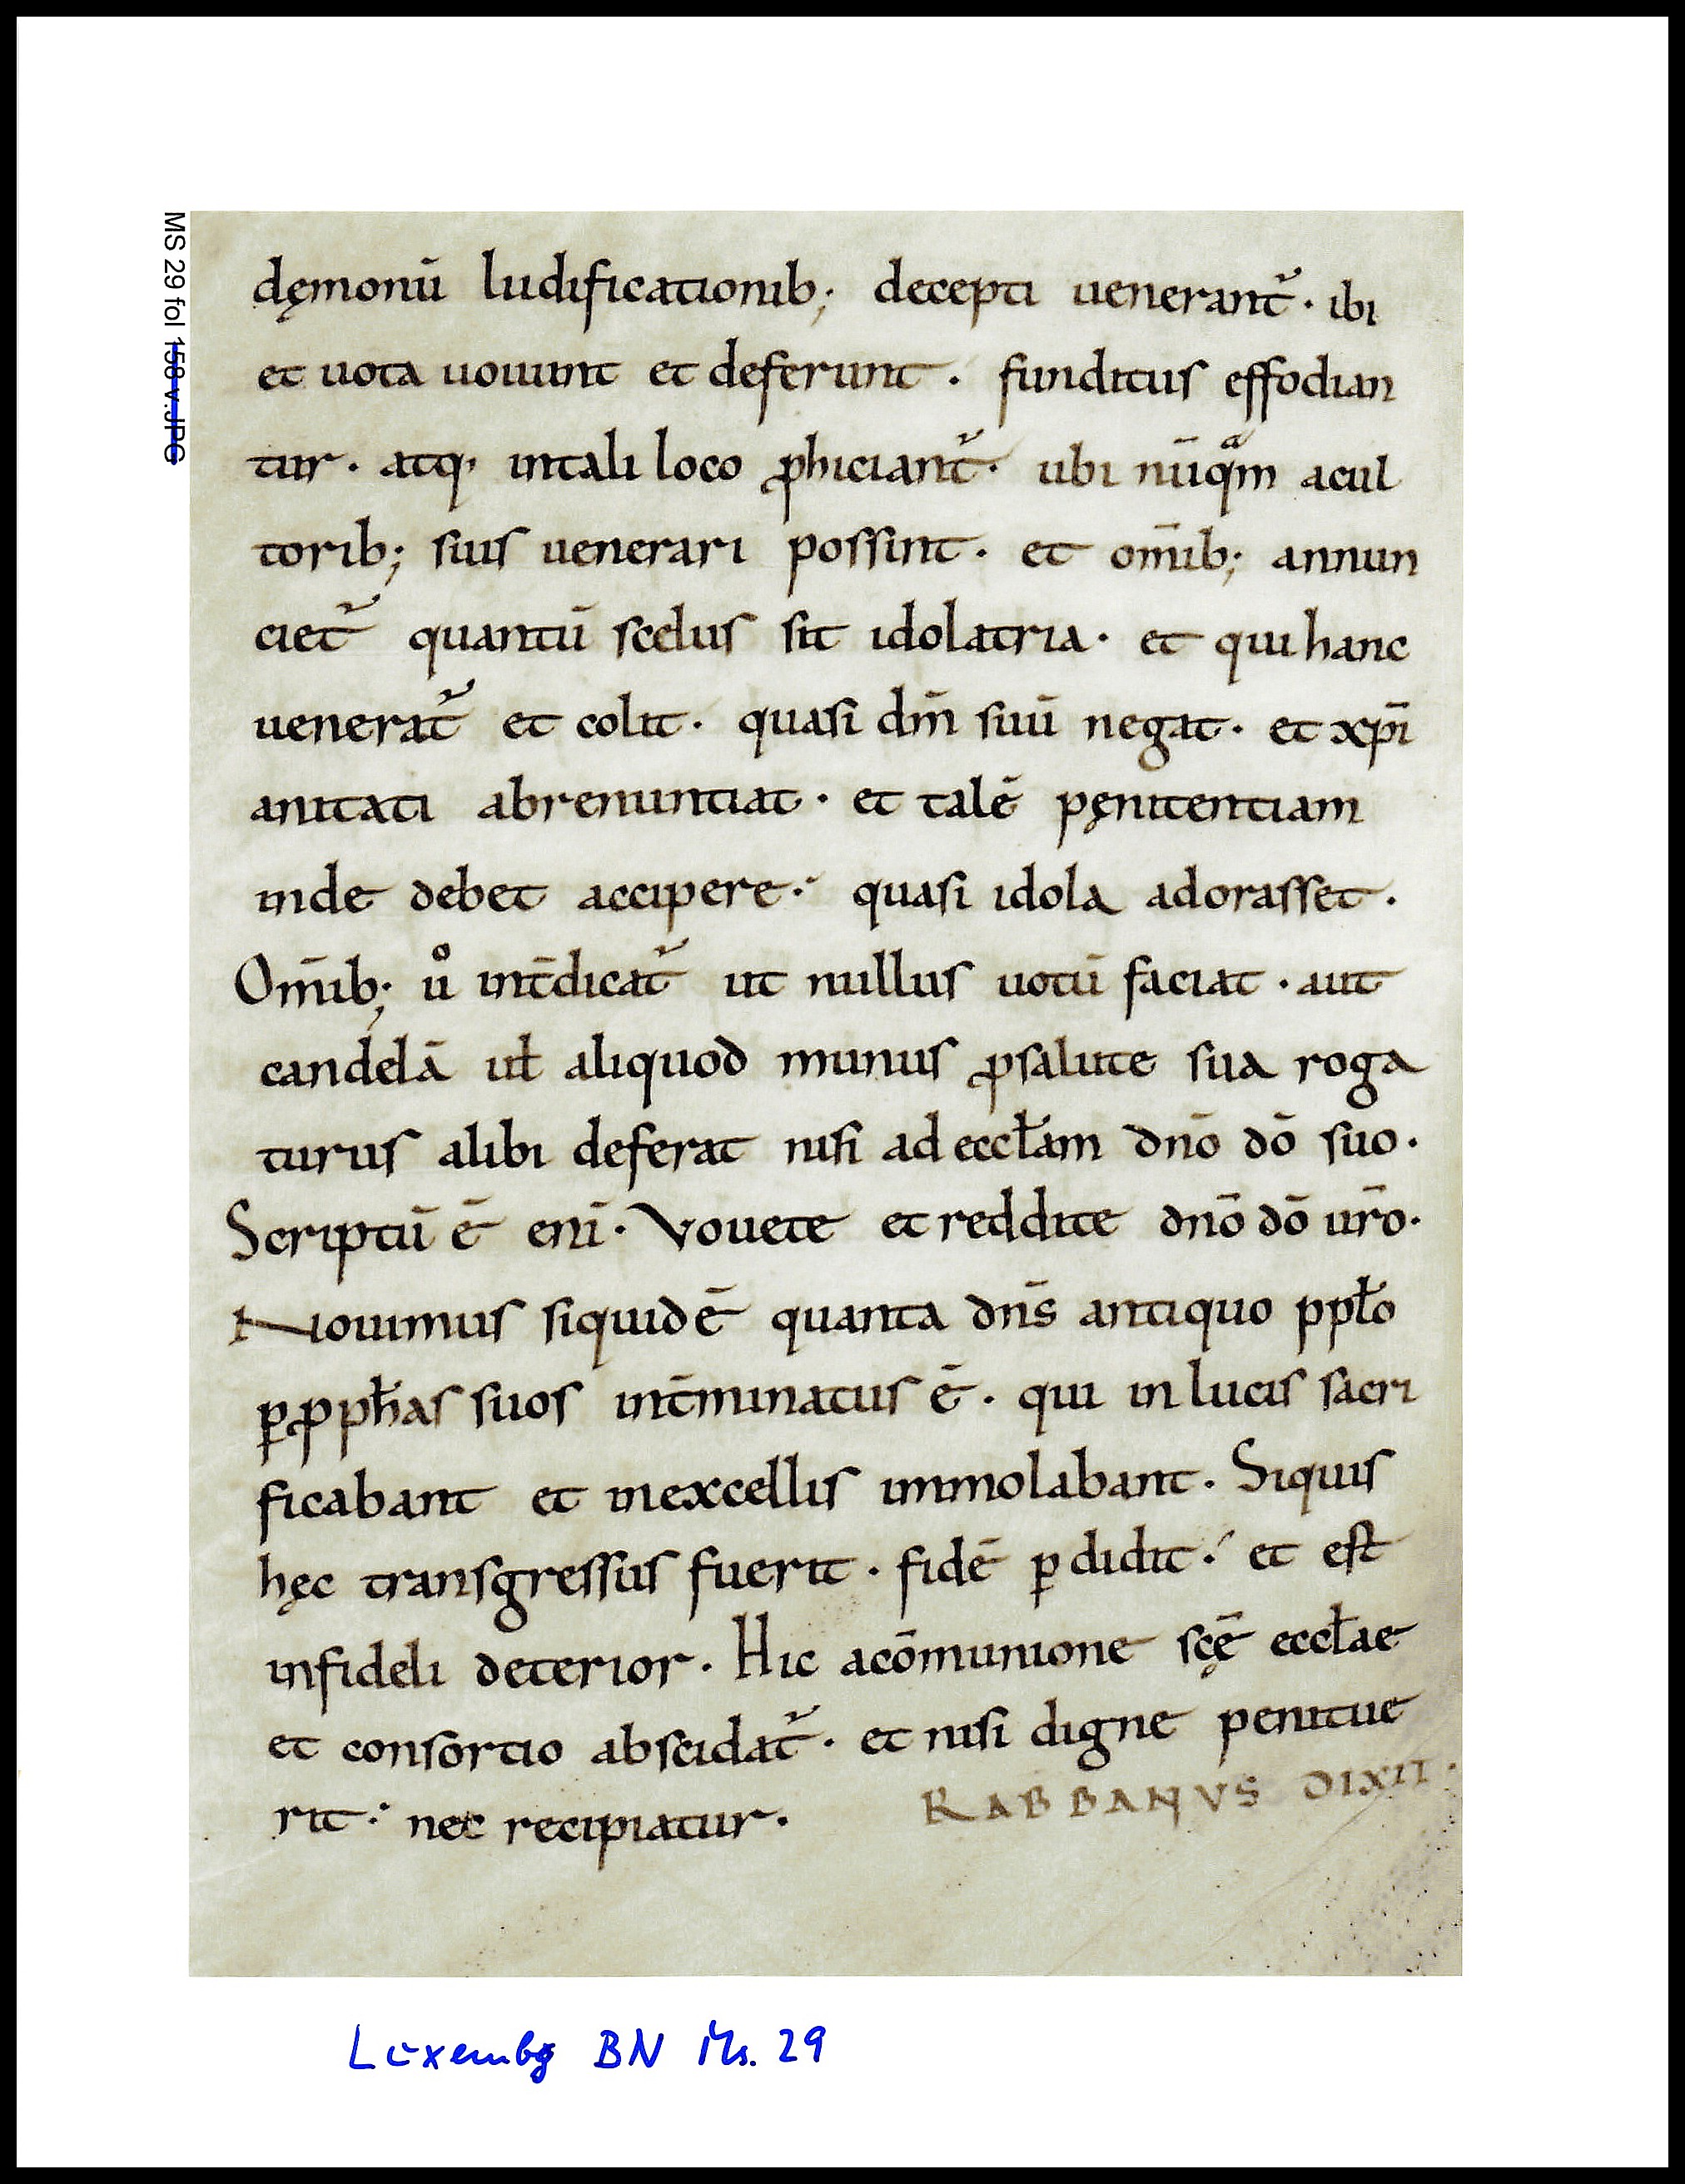 MS 29 fol 158 v.JPG
dęmonū ludificationib; decepti uenerant᷑· ibi
et uota uouunt et deferunt · funditus effodian
tur · atq· intali loco ꝓhiciant᷑· ubi nūqᵃm acul
torib; suis uenerari possint · et om̄ib; annun
ciet᷑ quantū scelus sit idolatria · et qui hanc
uenerat᷑ et colit · quasi dm̄ suū negat · et xpī
anitati abrenuntiat · et talē pęnitentiam
inde debet accipere ·' quasi idola adorasset ·
Om̄ib; uͦ int̄dicat᷑ ut nullus uotū faciat · aut
candelā uł aliquod munus ꝓsalute sua roga
turus alibi deferat nisi ad eccłam dn̄o dō suo ·
Scriptū ē enī · Vouete et reddite dn̄o dō ur̄o ·
Nouimus siquidē quanta dn̄s antiquo ppło
ꝑꝓpħas suos int̄minatus ē · qui in lucis sacri
ficabant et inexcellis immolabant · Siquis
hęc transgressus fuerit · fidē ꝑdidit ·' et est
infideli deterior · Hic acōmunione scę̄ eccłae
et consortio abscidat᷑ · et nisi digne penitue
rit ·' nec recipiatur ·
RABBANVS DIXIT ·
Luxembg BN Ms. 29